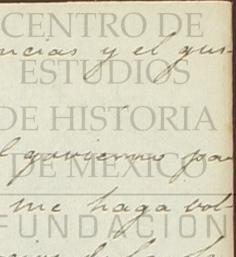 CENTRO DE
ncias y el gus-
ESTUDIOS
DE HISTORIA
l govierno pa
DE MEXICO
me haga vol-
FUNDACION